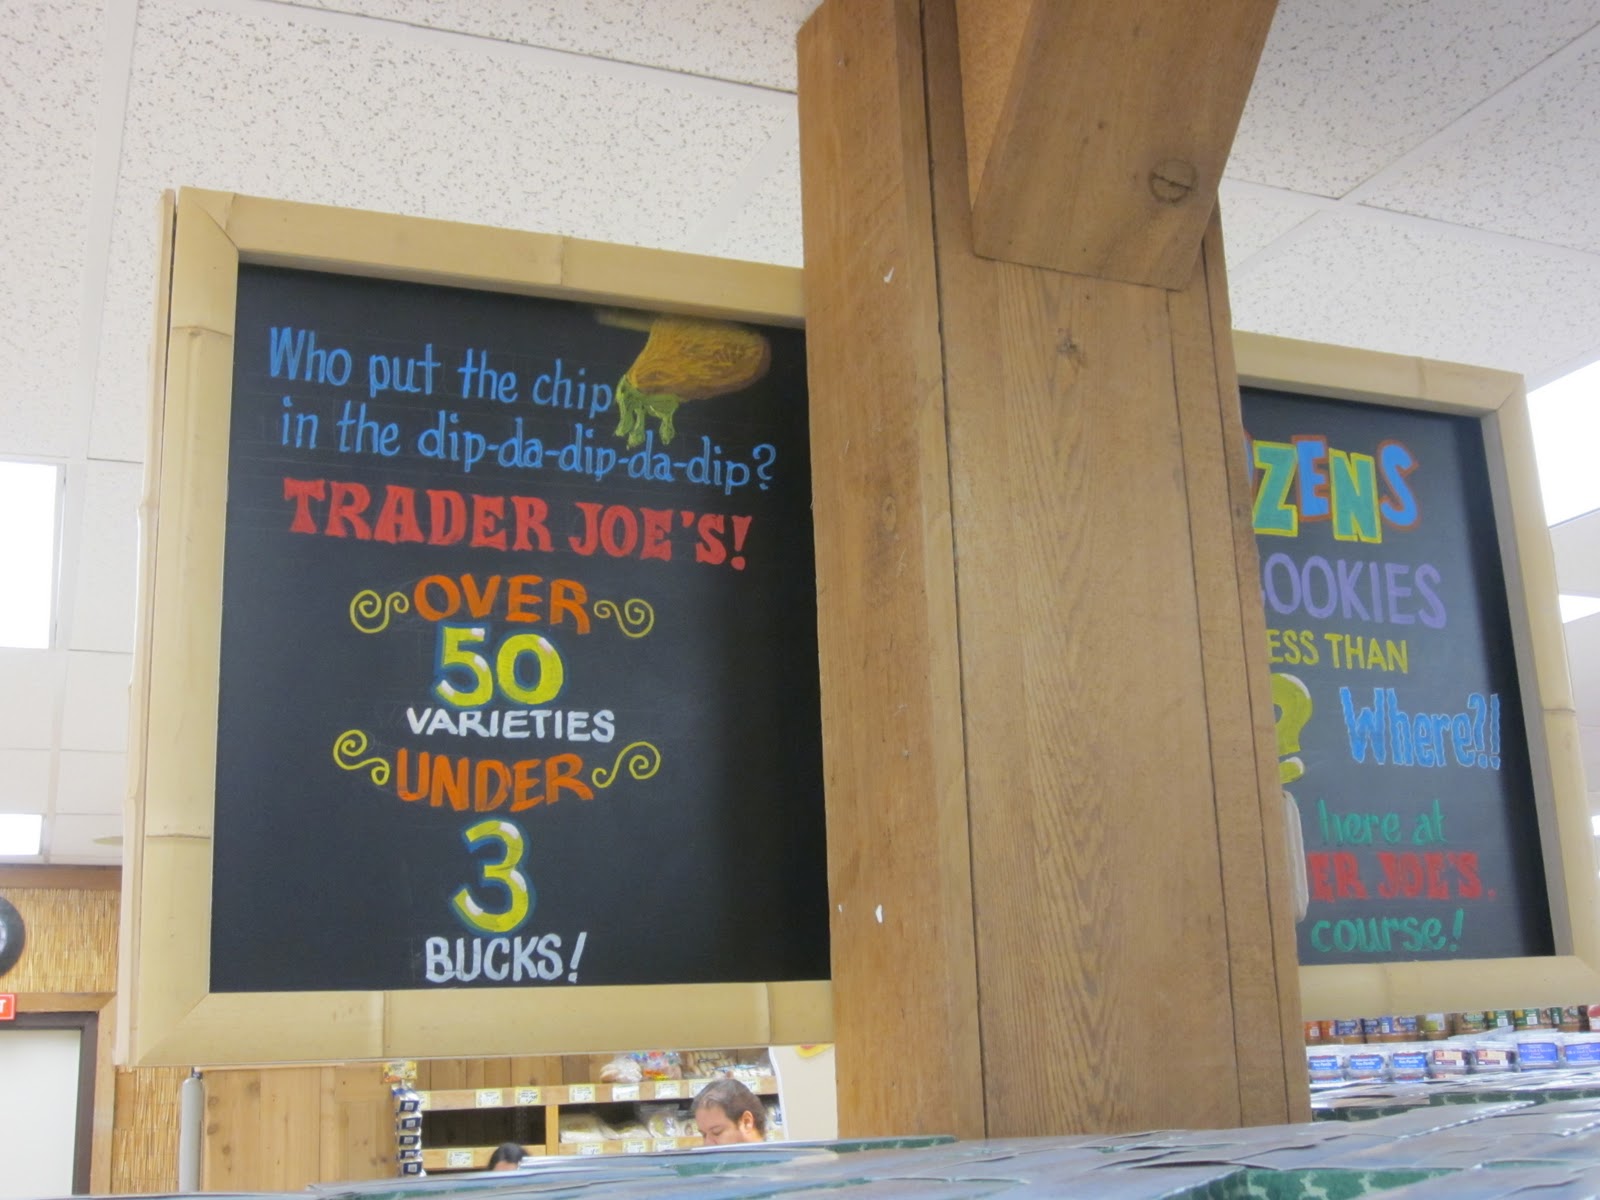 Who put the chip
in the dip-da-dip-da-dip?
TRADER JOE'S!
OVER
50
VARIETIES
UNDER
3
BUCKS!
ZENS
OOKIES
ESS THAN
? Where?!
here at
ER JOE'S.
course!